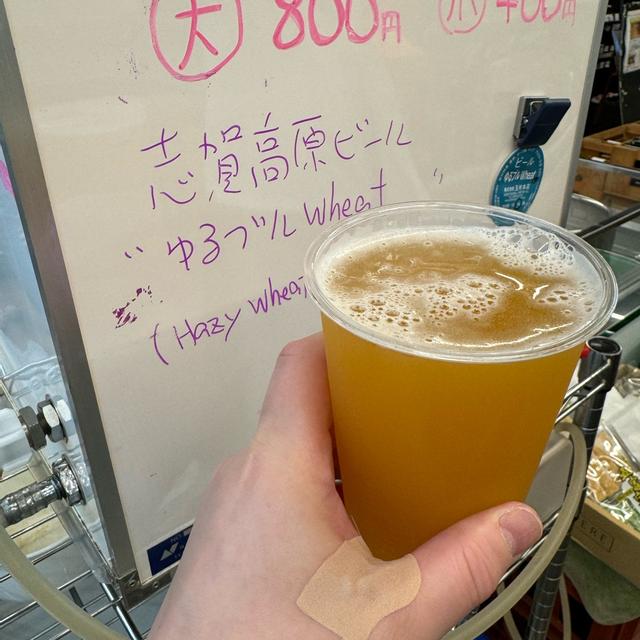 大 800円 小 400円
志賀高原ビール
"ゆるブルWheat"
(Hazy Wheat
ビール
ゆるブルWheat